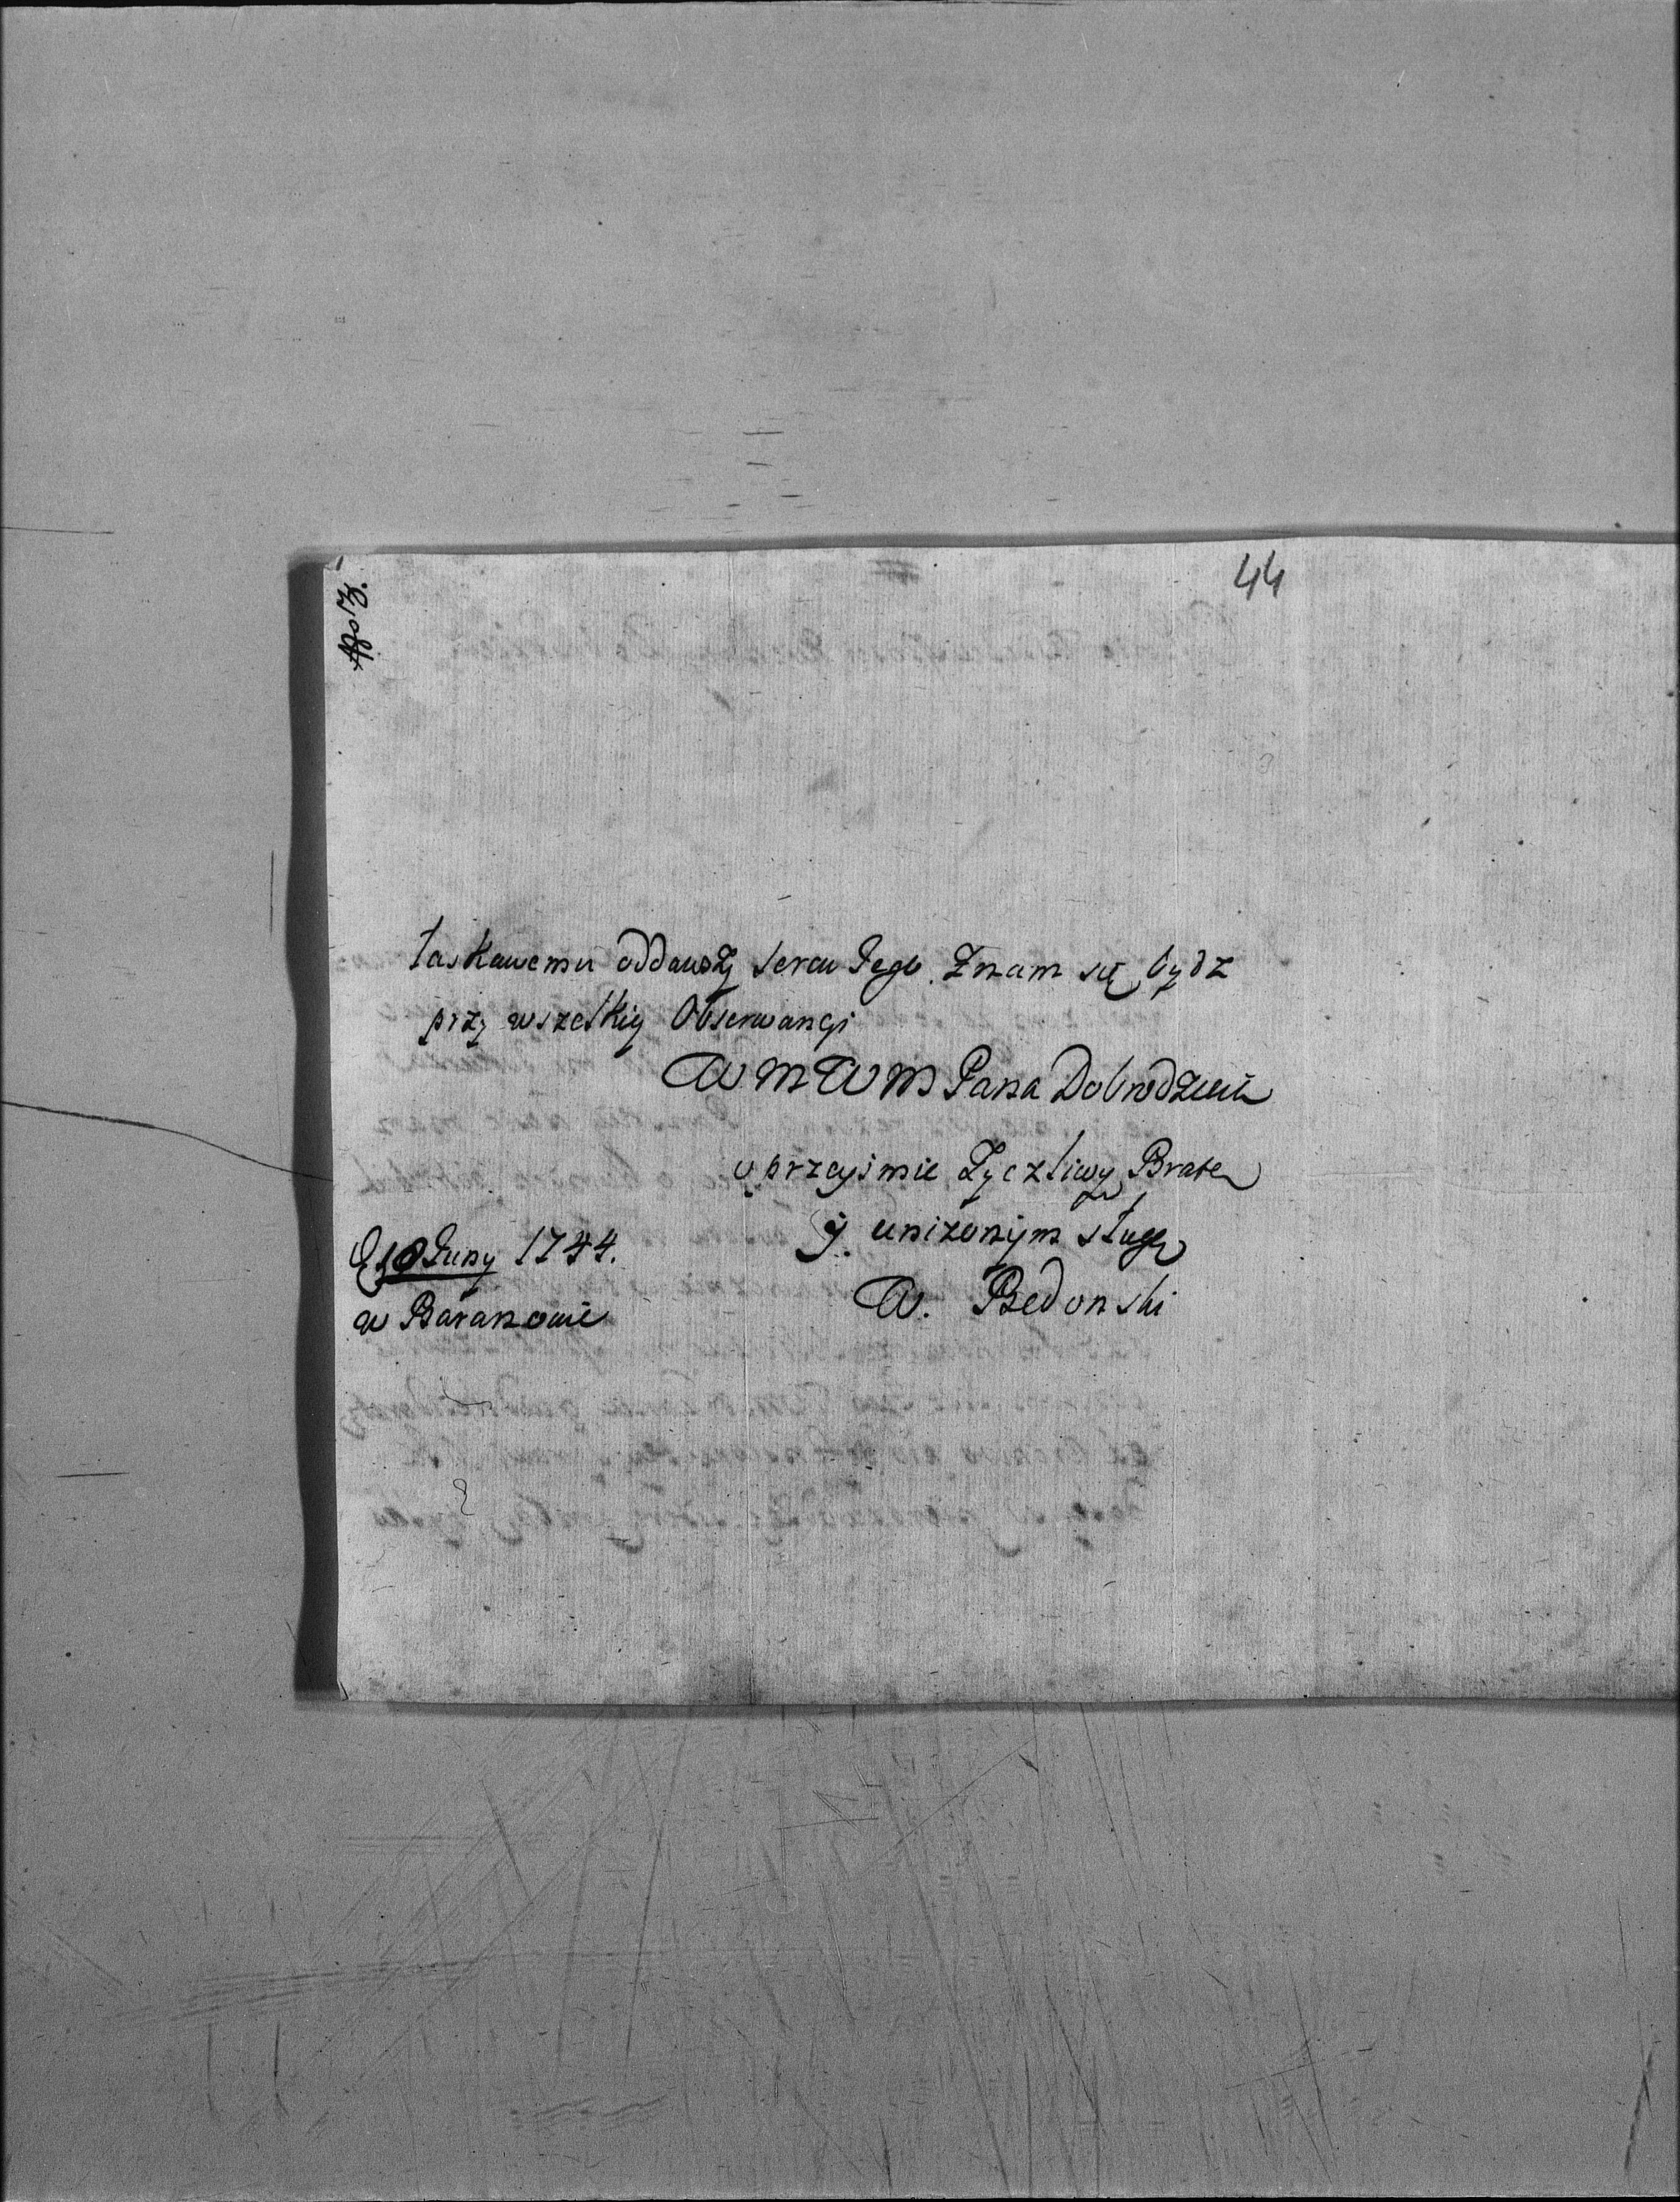 44
łaskawemu oddawszy sercu Jego. Znam się bydz
przy wszelkiy Obserwancyi
WMWM Pana Dobrodzieia
uprzeyimie Zyczliwy Bratem
y. unizonym sługą
W. Bedonski
D 10 Juny 1744.
w Baranowie